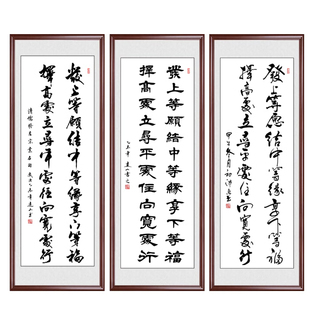 發上等願結中等緣享下等福
擇高處立尋平處住向寬處行
甲午冬月
發上等願結中等緣享下等福
擇高處立尋平處住向寬處行
發上等願結中等緣享下等福
擇高處立尋平處住向寬處行